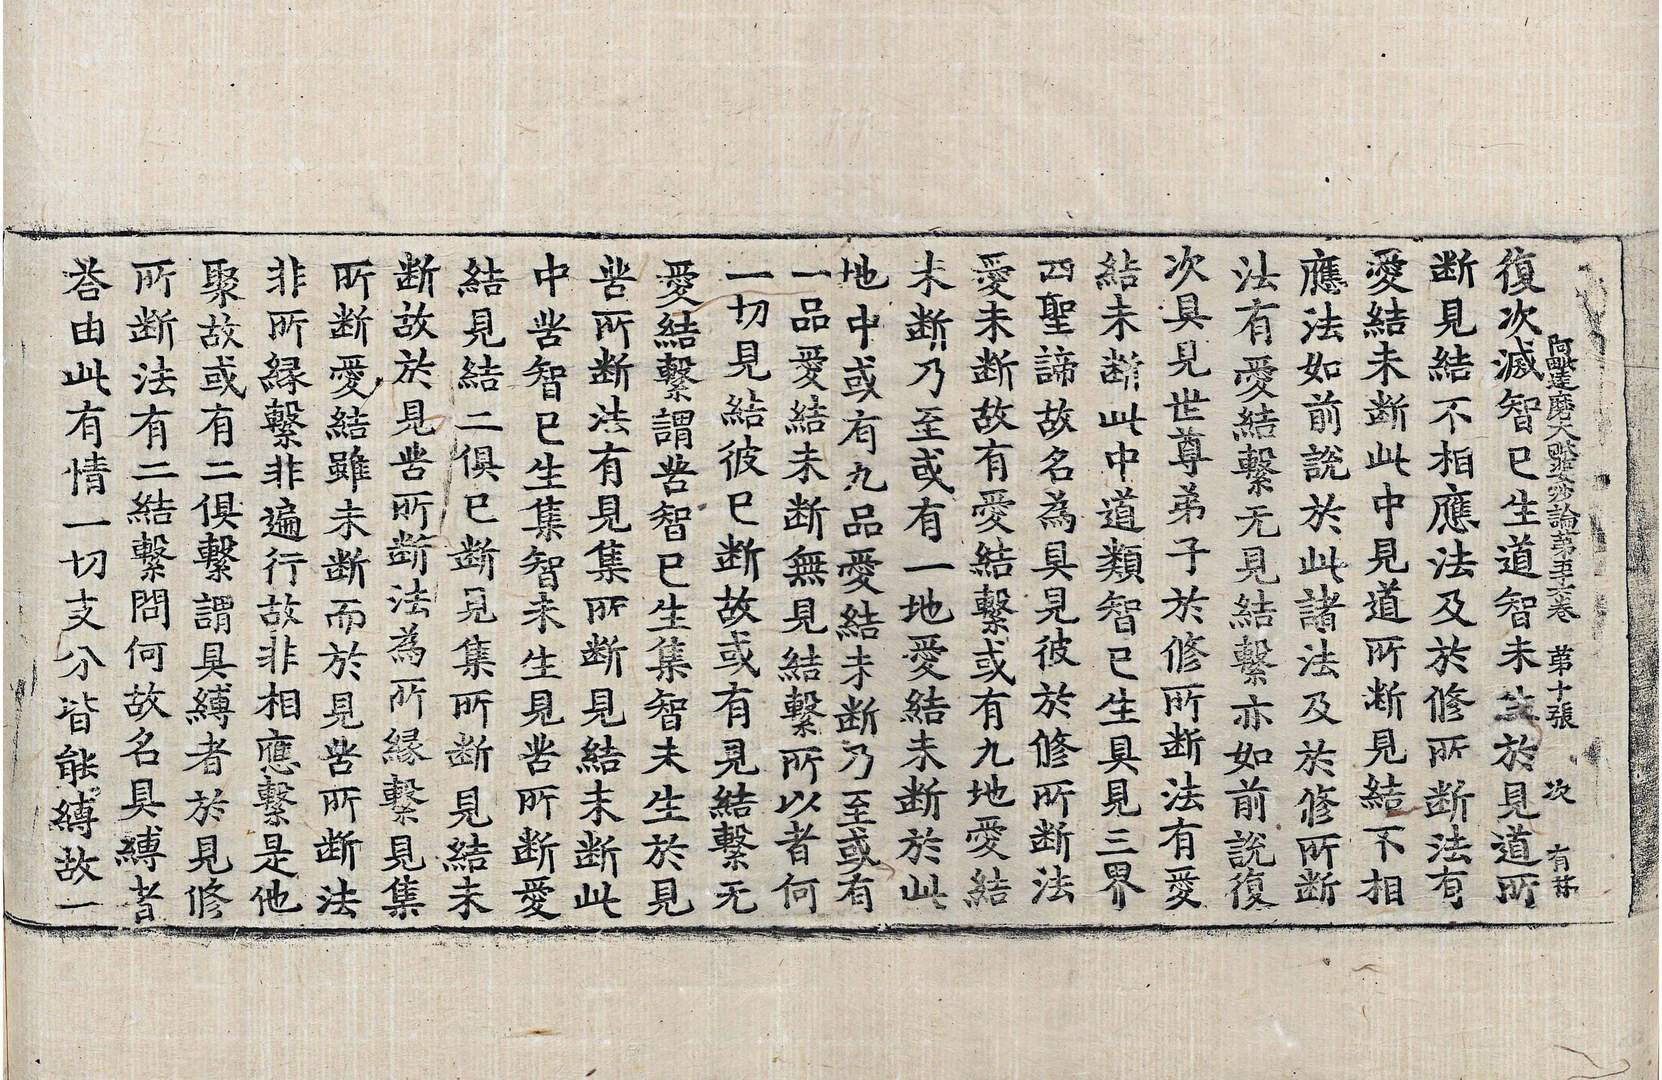 阿毗達磨大毗婆沙論第五十六卷 第十張 次 有
復次滅智已生道智未生於見道所
断見結不相應法及於修所断法有
愛結未断此中見道所断見結不相
應法如前說於此諸法及於修所断
法有愛結繫无見結繫亦如前說復
次具見世尊弟子於修所断法有愛
結未断此中道類智已生具見三界
四聖諦故名為具見彼於修所断法
愛未断故有愛結繫或有九地愛結
未断乃至或有一地愛結未断於此
地中或有九品愛結未断乃至或有
一品愛結未断無見結繫所以者何
一切見結彼已断故或有見結繫无
愛結繫謂苦智已生集智未生於見
苦所断法有見集所断見結未断此
中苦智已生集智未生見苦所断愛
結見結二俱已断見集所断見結未
断故於見苦所断法為所緣繫見集
所断愛結雖未断而於見苦所断法
非所緣繫非遍行故非相應繫是他
聚故或有二俱繫謂具縛者於見修
所断法有二結繫問何故名具縛者
荅由此有情一切支分皆能縛故一